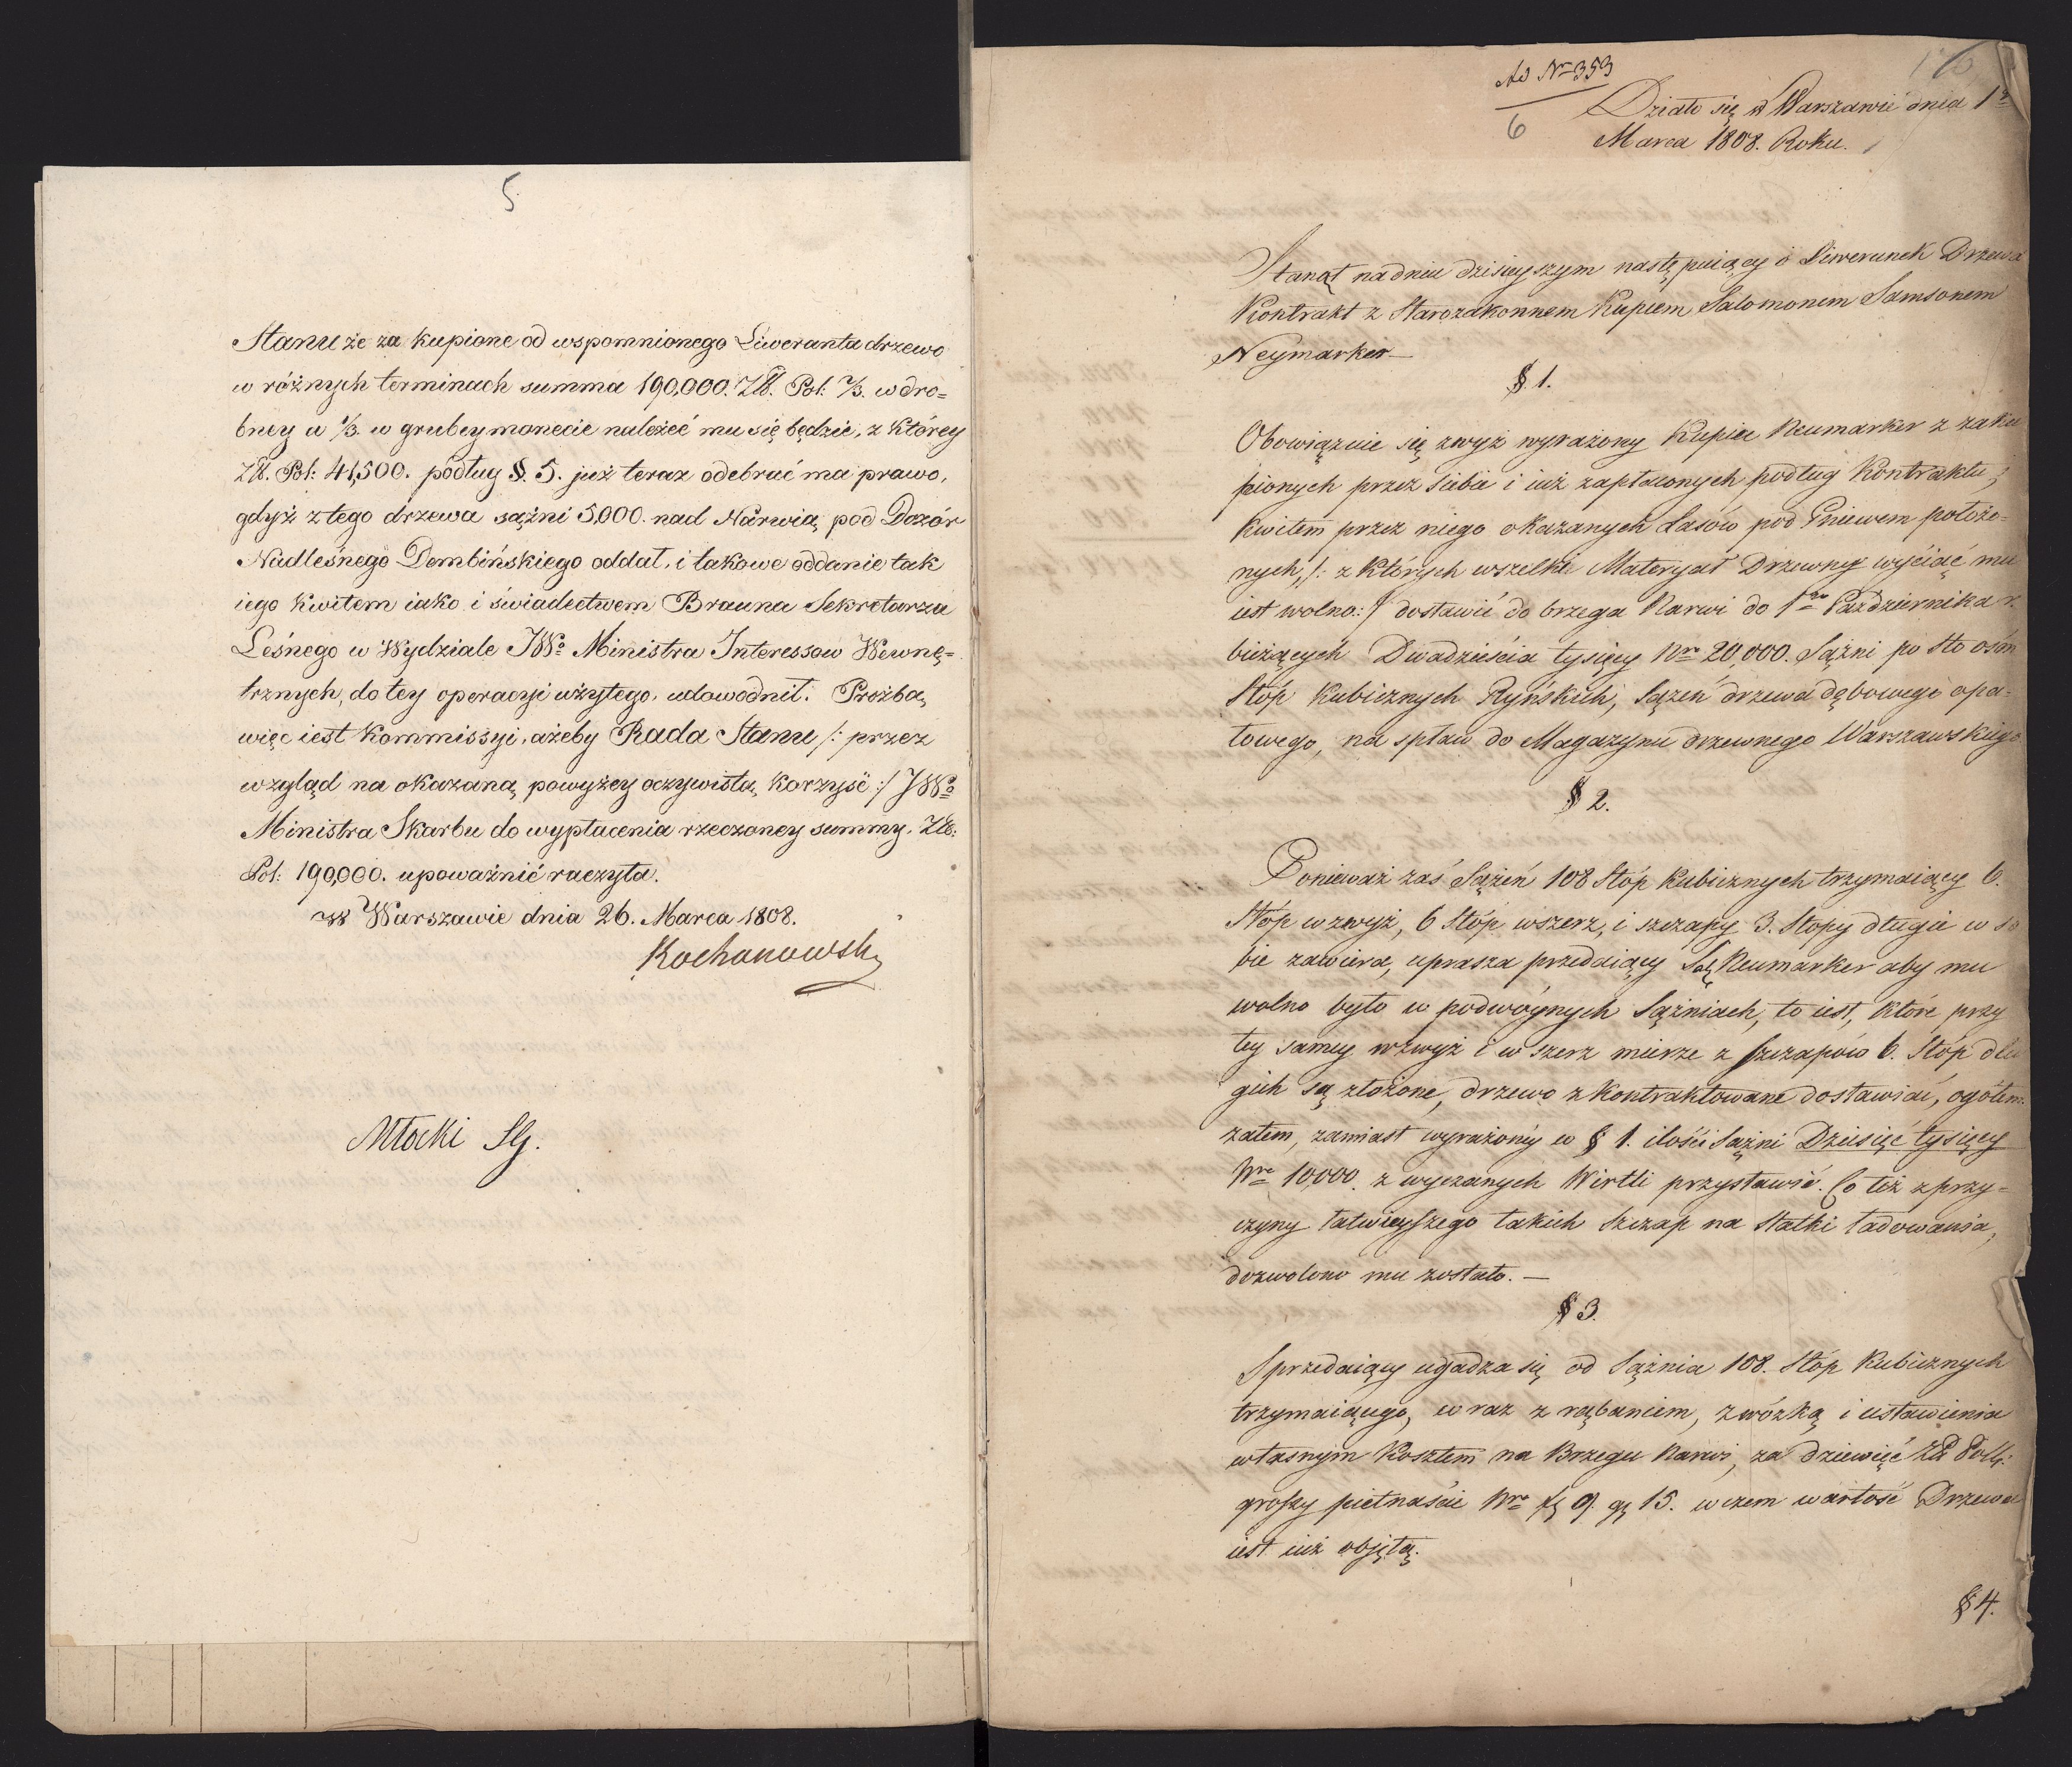 5
Stanu że za kupione od wspomnionego Liweranta drzewo
w różnych terminach summa 190,000. Zł. Pol: 2/3. w dro=
bney a 1/3. w grubey monecie należeć mu się będzie, z którey
Zł. Pol: 41,500. podług §. 5. już teraz odebrać ma prawo,
gdyż z tego drzewa sążni 5,000. nad Narwią pod Dozór
Nadleśnego Dembińskiego oddał, i takowe oddanie tak
iego kwitem iako i świadectwem Brauna Sekretarza
Leśnego w Wydziale JWo Ministra Interessow Wewnę=
trznych, do tey operacyi użytego, udowodnił. Prożbą
więc iest Kommissyi, ażeby Rada Stanu /: przez
wzgląd na okazaną powyżey oczywistą korzyść :/ JWo
Ministra Skarbu do wypłacenia rzeczoney summy. Zł:
Pol: 190,000. upoważnić raczyła.
w Warszawie dnia 26. Marca 1808.
Kochanowski
Młocki SG.
Ad Nr 353
6
Działo się w Warszawie dnia 1o
Marca 1808. Roku.
Stanął na dniu dzisieyszym następuiący o Liwerunek Drzewa
Kontrakt z Starozakonnem Kupcem Salomonem Samsonem
Neymarker
§ 1.
Obowiązuie się zwyż wyrażony Kupiec Neumarker z zaku
pionych przez siebie i iuż zapłaconych podług Kontraktu, i
kwitem przez niego okazanych Lasów pod Pniewem położo=
nych, /: z których wszelki Materyał Drzewny wyciąć mu
iest wolno :/ dostawić do brzega Narwi do 1go Października r.
bieżących Dwadzieścia tysięcy Nro 20,000. Sążni po sto osm
Stóp Kubicznych Ryńskich, Sążeń drzewa dębowego opa=
łowego, na spław do Magazynu drzewnego Warszawskiego
§ 2.
Ponieważ zaś Sążeń 108 Stóp Kubicznych trzymaiący 6.
Stóp wzwyż, 6 Stóp wszerz, i szczapy 3. Stopy długie w so
bie zawiera, uprasza przedaiący Neumarker aby mu
wolno było w podwóynych Sążniach, to iest, które przy
tey samey wzwyż i w szerz mierze z szczapów 6. Stóp dłu
gich są złożone, drzewo zkontraktowane dostawiać, ogółem
zatem, zamiast wyrażoney w § 1. ilości Sążni Dziesięć tysięcy
Nro 10,000. z wyczanych Wirtli przystawić. Co też z przy=
czyny łatwieyszego takich Szczap na Statki ładowania,
dozwolono mu zostało. —
§ 3.
Sprzedaiący ugadza się od Sążnia 108. Stóp Kubicznych
trzymaiącego, w raz z rąbaniem, zwózką i ustawienia
własnym Kosztem na Brzegu Narwi, za dziewięć Zł Poll:
groszy pietnaście Nro fl 9. gr 15. w czem wartość Drzewa
iest iuż objętą.
§ 4.